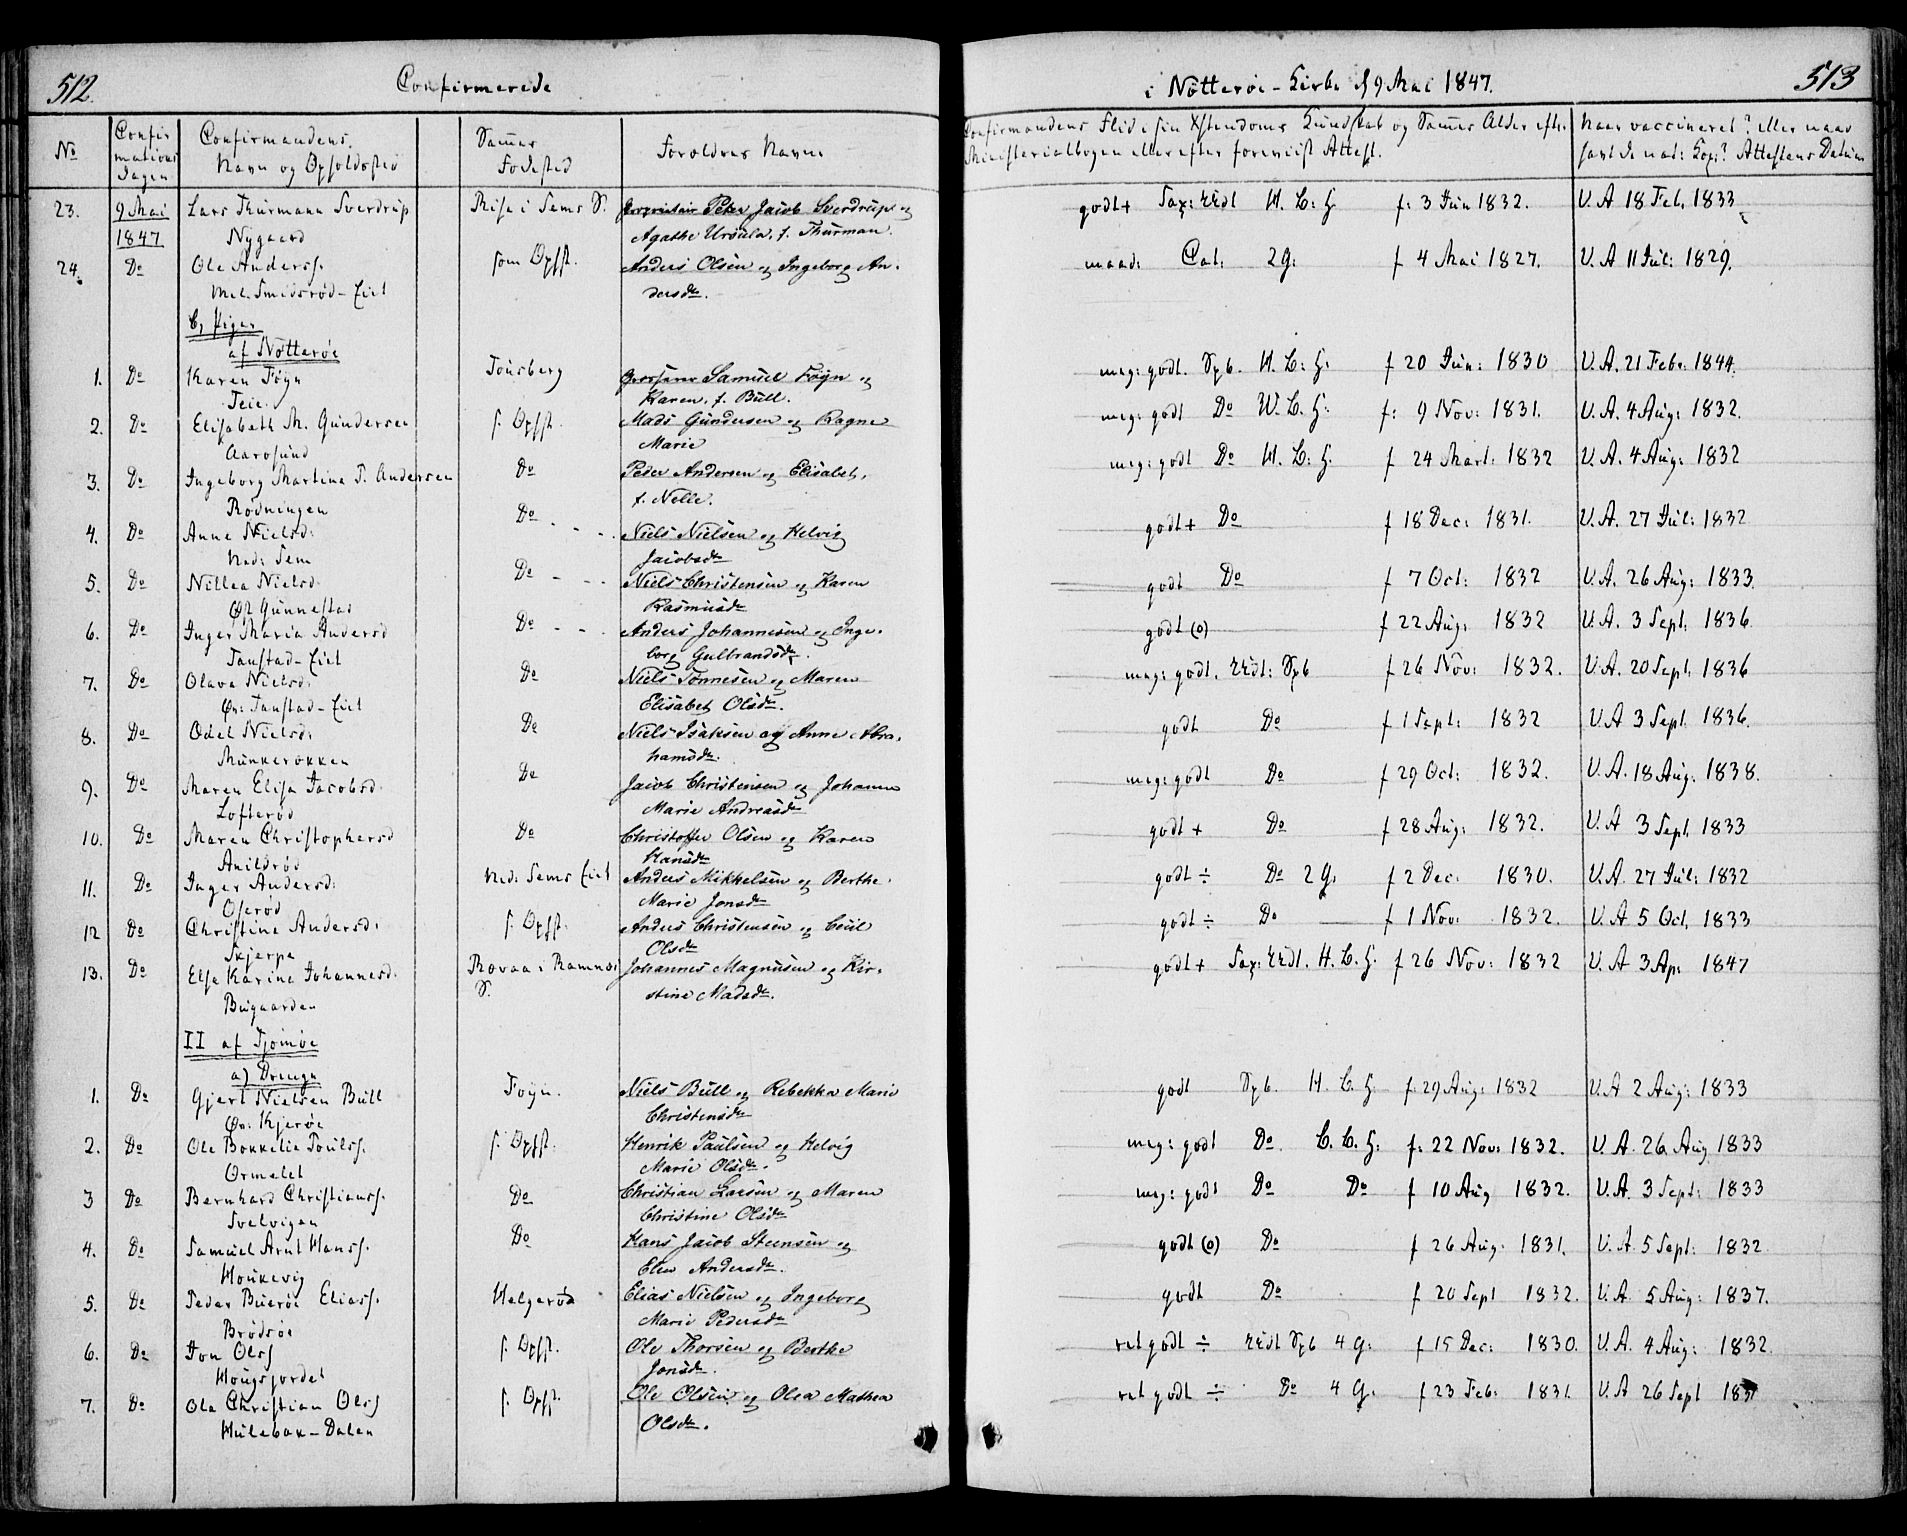 512.
Confirmerede
i Nötteröe-Kirke d 9 Mai 1847.
513
No
Confir
mations
Dagen
Confirmandens
Navn og Opholdsted
Sammes
Fødested
Forældres Navn
Confirmandens Flid i sin Xstendoms Kundskab og Sammes Alder efter
Ministerialbogen eller efter foreviist Attest.
Naar vaccineret? eller naar
havt de nat: Kop:? Attestens Datum
23. 9 Mai Lars Thürmann Sverdrup Rise i Sems S. Proprietair Peter Jacob Sverdrup og godt + Sax: RRdt H. L: H f: 3 Jun 1832. V. A 18 Feb. 1833
1847 Nygaard Agathe Ursula, f. Thurman.
24. Do Ole Anderss. som Opst. Anders Olsen og Ingeborg An- maad: Cat: 2 G: f 4 Mai 1827. V. A 11 Jul: 1829.
Mel. Smidsrød-Eiet dersdr.
b, Piger
af Nötteröe
1. Do Karen Föyn Tönsberg Samuel Föyn og meg: godt. Spb. H. L: H: f 20 Jun: 1830 V. A. 21 Febr. 1844.
Teie. Karen, f. Bull.
2. Do Elisabeth M. Gundersen s. Opst. Mads Gundersen og Ragne meg: godt Do H. L. H: f: 9 Nov: 1831. V. A. 4 Aug: 1832.
Aarøsund Marie
3. Do Ingeborg Martina P. Andersen Do Peder Andersen og Elisabet, meg: godt Do H. L: H. f 24 Mart: 1832 V. A. 4 Aug: 1832
Rødningen f. Nelle.
4. Do Anne Nielsd: Do Niels Nielsen og Helvig godt + Do f 18 Dec: 1831. V. A. 27 Jul: 1832
Ned: Sem Jacobsdr
5. Do Nillea Nielsd. Do Niels Christensen og Karen godt Do f 7 Oct: 1832 V. A. 26 Aug: 1833.
Gunnestad Rasmusdr
6. Do Inger Maria Andersd Do Anders Johannesen og Inge- godt (o) f 22 Aug: 1832 V. A. 3 Sept: 1836
Tanstad-Eiet borg Gulbrandsdr.
7. Do Olava Nielsd: Do Niels Tönnesen og Maren meg: godt. RRdt: Spb f 26 Nov: 1832. V. A. 20 Sept. 1836
Øv: Tanstad-Eiet Elisabet Olsdr.
8. Do Odel Nielsd: Do Niels Isaksen og Anne Abra- godt Do f 1 Sept: 1832 V. A 3 Sept. 1836.
Munkerökken hamsdr.
9. Do Maren Elisa Jacobsd. Do Jacob Christensen og Johanne meg: godt Do f 29 Oct: 1832. V. A. 18 Aug: 1838.
Lofterød Marie Andreasdr
10. Do Maren Christophersd Do Christoffer Olsen og Karen godt + Do f 28 Aug: 1832. V. A 3 Sept. 1833
Anildrød Hansdr
11. Do Inger Andersd: Ned: Sems Eiet Anders Mikkelsen og Berthe godt ÷ Do 2 G. f 2 Dec: 1830. V. A. 27 Jul: 1832
Oserød Marie Jonsdr
12 Do Christine Andersd: s. Opst. Anders Christensen og Cecil godt ÷ Do f 1 Nov: 1832. V. A 5 Oct. 1833
Skjerpe Olsdr
13. Do Else Karine Johannesd. Rovaa i Ramnæs Johannes Magnusen og Kir- godt + Sax: RRdt. H. L. H. f 26 Nov: 1832 V. A 3 Ap: 1847
Bugaarden S. stine Madsdr.
II af Tjömöe
a) Drenge
1. Do Gjert Nielsen Bull Föyn. Niels Bull og Rebekka Marie godt Spb. H. L H. f. 29 Aug: 1832 V. A 2 Aug: 1833
Øv: Kjøröe Christensdr
2. Do Ole Bokkelie Poulss. s. Opst. Henrik Paulsen og Helvig meg: godt Do L. L. H. f: 22 Nov: 1832. V. A. 26 Aug 1833
Ormelet Marie Olsdr.
3 Do Bernhard Christianss. Do Christian Larsen og Maren meg: godt Do Do f 10 Aug 1832. V. A. 3 Sept: 1833
Svelvigen Christine Olsdr
4. Do Samuel Arnt Hanss. Do Hans Jacob Steensen og godt (o) Do f 26 Aug. 1831. V. A. 5 Sept: 1832
Houkevig Elen Andersdr.
5. Do Peder Bueröe Eliass. Helgerød Elias Nielsen og Ingeborg godt Do f 20 Sept 1832. V. A. 5 Aug: 1837.
Brødsöe Marie Pedersdr
6. Do Jon Olss s. Opst. Ole Thorsen og Berthe ret godt ÷ RRdt Spb 4 G: f 15 Dec: 1830. V. A. 4 Aug: 1832.
Hougsjordet Jonsdr.
7. Do Ole Christian Olss s. Opst. Ole Olsen og Olea Mathea ret godt ÷ Do 4 G. f 23 Feb: 1831. V. A 26 Sept
Hulebak-Dalen Olsdr.